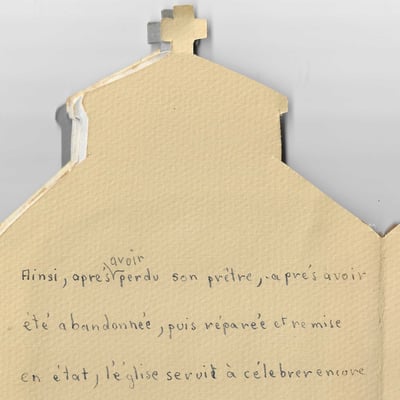 Ainsi, après avoir perdu son prêtre, après avoir
été abandonnée, puis réparée et remise
en état, l'église servit à célébrer encore